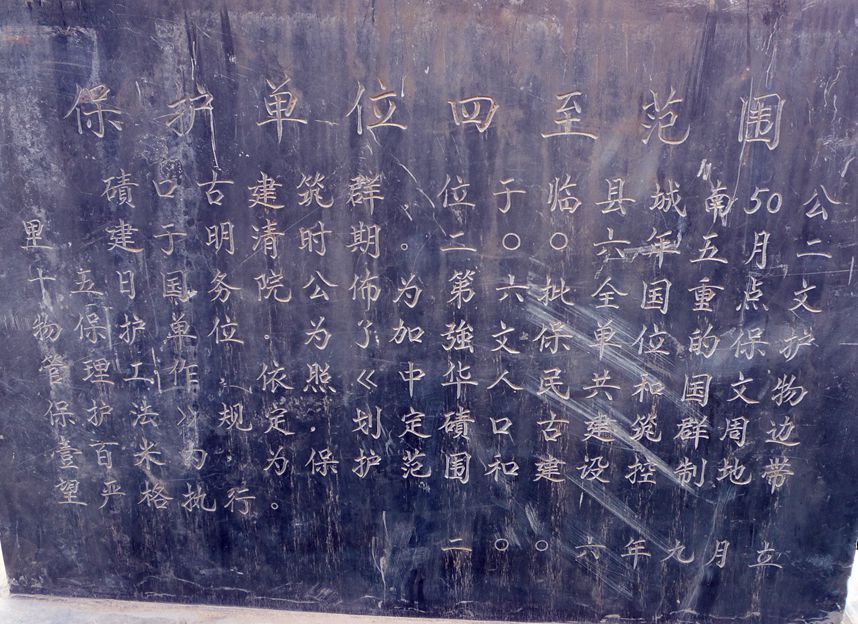 保护单位四至范围
碛口古建筑群、位于临县城南50公
里建于明清时期。二〇〇六年五月二
十五日国务院公佈为第六批全国重点文
物保护单位。为了加強文保单位的保护
管理工作、依照《中华人民共和国文物
保护法》规定.划定碛口古建筑群周边
壹百米为保护范围和建设控制地带
望严格执行。
二〇〇六年九月立